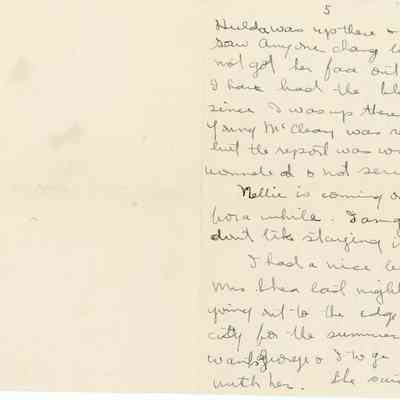 5
Hulda was up there &
saw anyone chang
not got her face out
I have had the bl
since I was up there
Young McCleary was
but the report was wr
wounded & not seri
Nellie is coming o
for a while. I am g
don't like staying i
I had a nice le
Mrs. Shea last night
going out to the edge
city for the summer
wants George & I to go
with her. She said